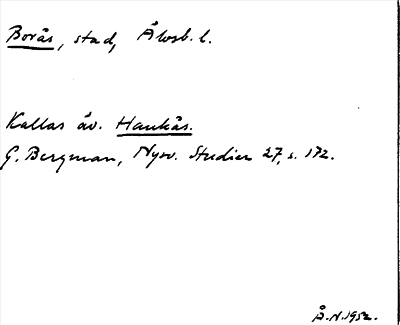 Borås, stad, Älvsb. l.
Kallas äv. Hankås.
G. Bergman, Nysv. Studier 27, s. 172.
Å.N. 1952.